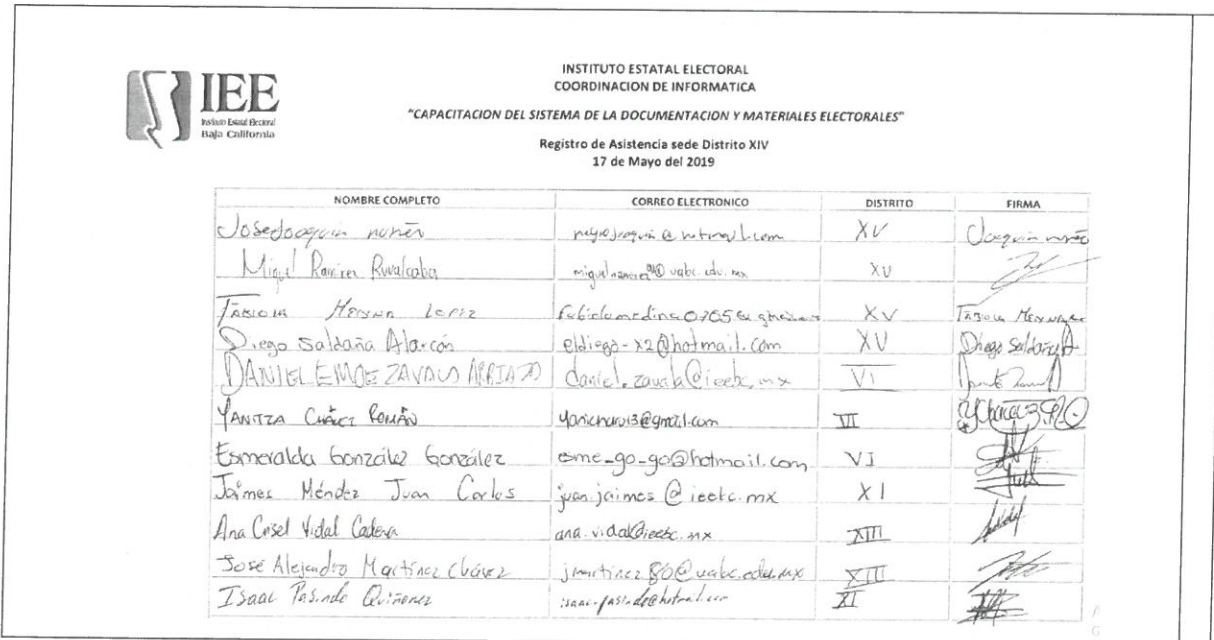 IEE
Instituto Estatal Electoral
Baja California
INSTITUTO ESTATAL ELECTORAL
COORDINACION DE INFORMATICA
"CAPACITACION DEL SISTEMA DE LA DOCUMENTACION Y MATERIALES ELECTORALES"
Registro de Asistencia sede Distrito XIV
17 de Mayo del 2019
NOMBRE COMPLETO CORREO ELECTRONICO DISTRITO FIRMA
Jose Joaquin nuñez XV Joaquin nuñez
Miguel Ramirez Ruvalcaba XV
Fabiola Medina Lopez XV Fabiola Medina
Diego Saldaña Alarcón eldiego-x2@hotmail.com XV Diego Saldaña A
DANIEL ZAVALA daniel.zavala@ieebc.mx VI
YANITZA CHÁVEZ ROMÁN VI
Esmeralda González González esme_go_go@hotmail.com VI
Jaimes Méndez Juan Carlos juan.jaimes@ieebc.mx XI
Ana Vidal ana.vidal@ieebc.mx XIII
José Alejandro Martínez Chávez jmartinez80@uabc.edu.mx XIII
Isaac Quiñonez XI